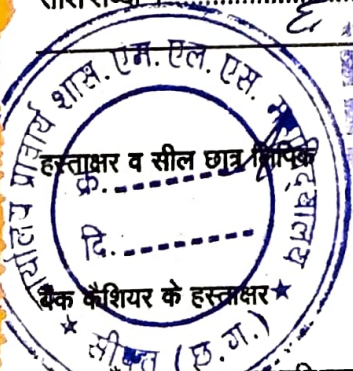 कार्यालय प्राचार्य शास. एम. एल. एस. महाविद्यालय
हस्ताक्षर व सील छात्र लिपिक
क्र.
दि.
बैंक कैशियर के हस्ताक्षर
सीपत (छ.ग.)